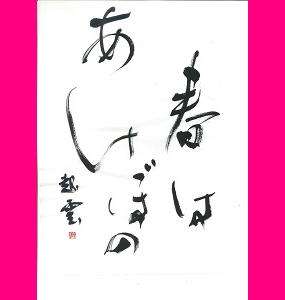 春は
あけぼの
越雲